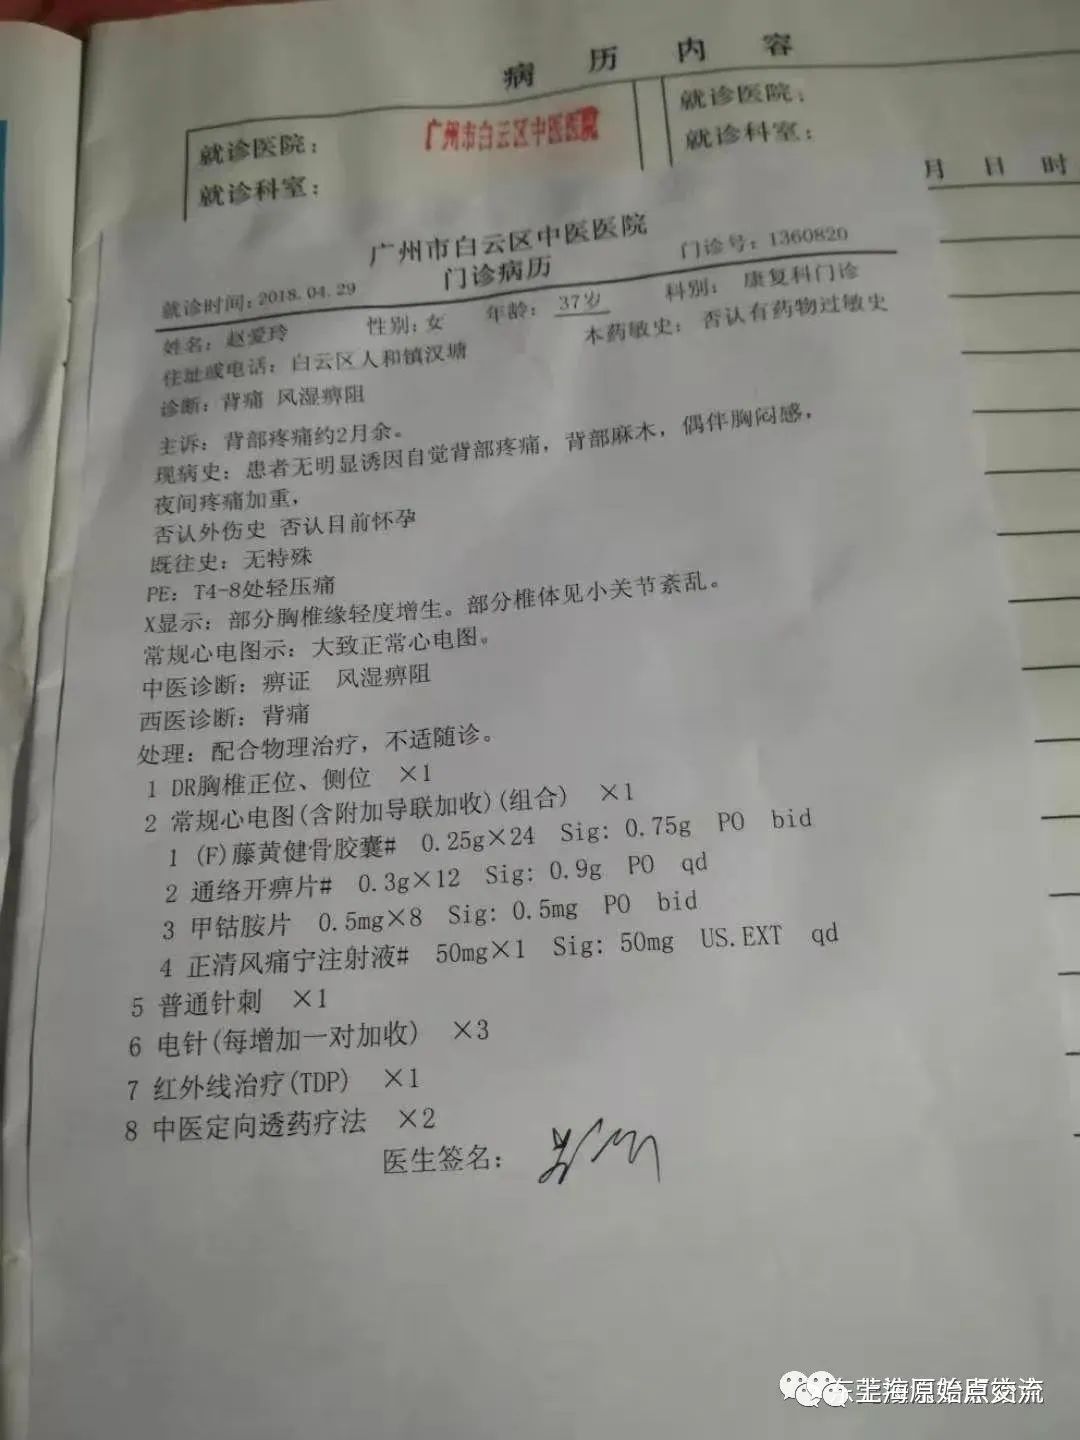 病 历 内 容
就诊医院：
广州市白云区中医医院
就诊科室：
就诊医院：
就诊科室：
月 日 时
广州市白云区中医医院
门诊病历
门诊号：1360820
就诊时间：2018.04.29
科别： 康复科门诊
姓名：赵爱玲 性别：女 年龄： 37岁
本药敏史：否认有药物过敏史
住址或电话：白云区人和镇汉塘
诊断：背痛 风湿痹阻
主诉：背部疼痛约2月余。
现病史：患者无明显诱因自觉背部疼痛，背部麻木，偶伴胸闷感，
夜间疼痛加重，
否认外伤史 否认目前怀孕
既往史：无特殊
PE：T4-8处轻压痛
X显示：部分胸椎缘轻度增生。部分椎体见小关节紊乱。
常规心电图示：大致正常心电图。
中医诊断：痹证 风湿痹阻
西医诊断：背痛
处理：配合物理治疗，不适随诊。
1 DR胸椎正位、侧位 ×1
2 常规心电图(含附加导联加收)(组合) ×1
1 (F)藤黄健骨胶囊# 0.25g×24 Sig: 0.75g PO bid
2 通络开痹片# 0.3g×12 Sig: 0.9g PO qd
3 甲钴胺片 0.5mg×8 Sig: 0.5mg PO bid
4 正清风痛宁注射液# 50mg×1 Sig: 50mg US.EXT qd
5 普通针刺 ×1
6 电针(每增加一对加收) ×3
7 红外线治疗(TDP) ×1
8 中医定向透药疗法 ×2
医生签名：